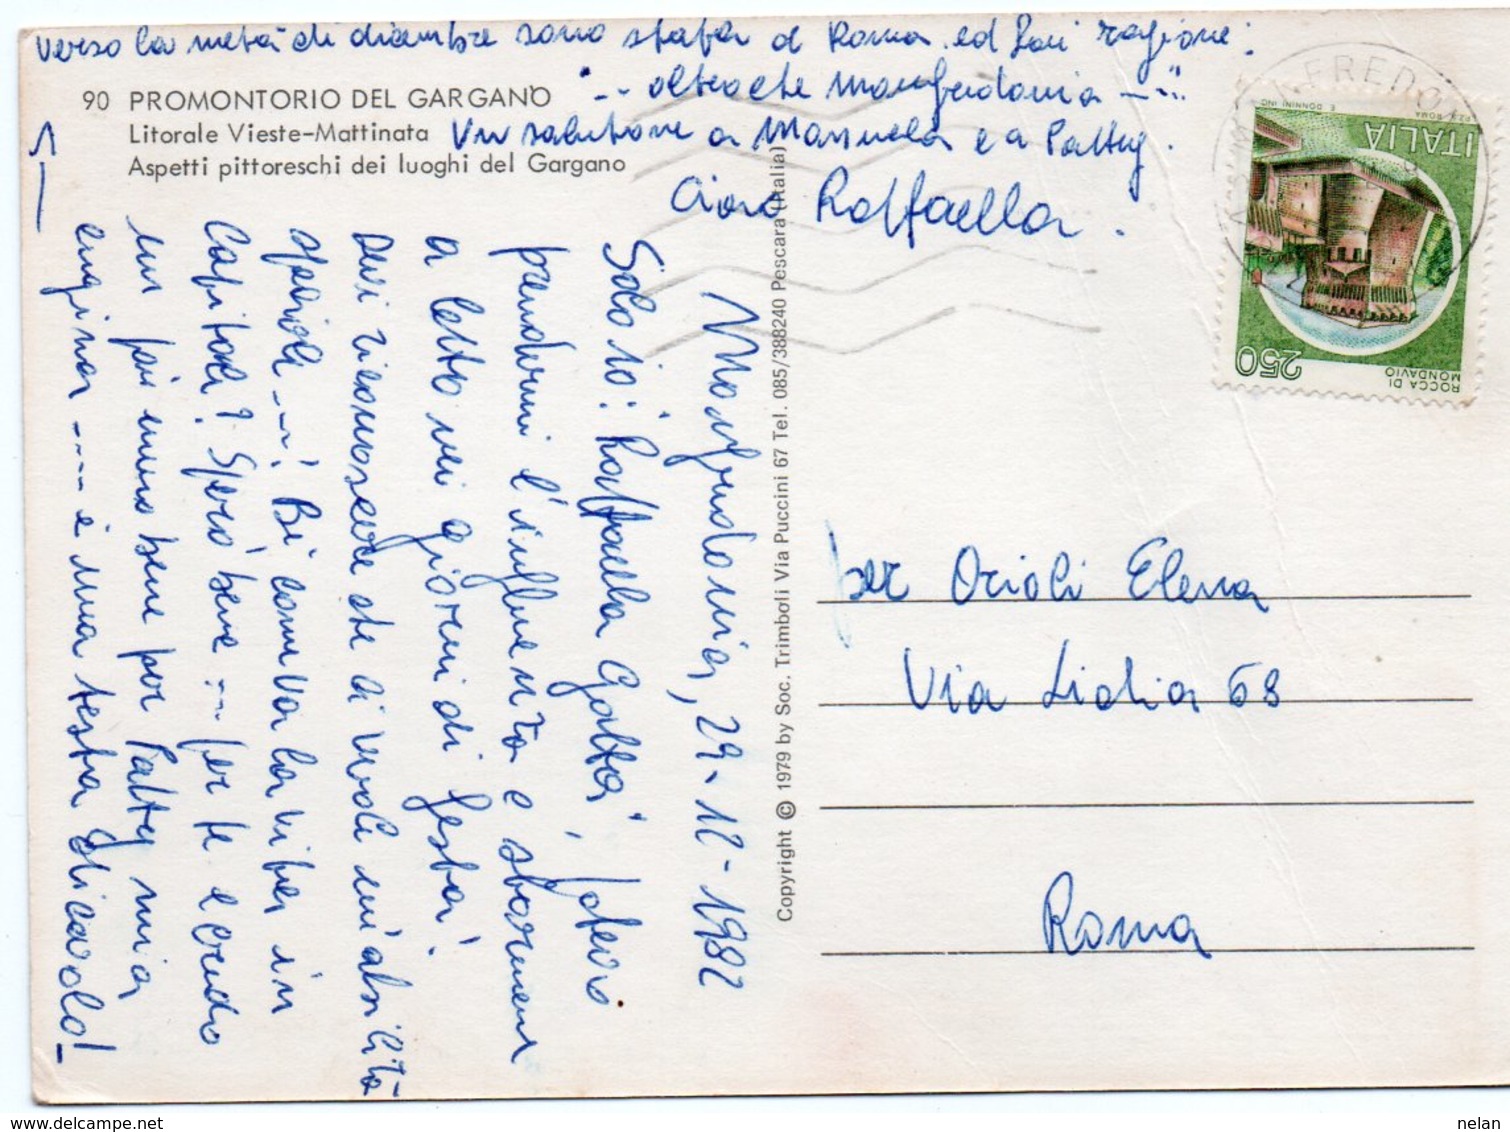 90 PROMONTORIO DEL GARGANO
Litorale Vieste-Mattinata
Aspetti pittoreschi dei luoghi del Gargano
Manfredonia, 29-12-1982
Solo io: Raffaella Gatta, potevo
prendermi l'influenza e starmene
a letto nei giorni di festa!
Devi riconoscere che ai un'abilità
speciale ---! Bè come va la vita in
Capitale? Spero bene --- per te e credo
un pai meno bene per Patty mia
cugina ---- è una testa di cavolo!
verso la metà di dicembre sono stata a Roma ed hai ragione:
"-- altroché Manfredonia ---"
Un salutone a Manuela e a Patty.
Ciao Raffaella.
Copyright © 1979 by Soc. Trimboli Via Puccini 67 Tel. 085/388240 Pescara (Italia)
ITALIA
250
ROCCA DI
MONDAVIO
per Orioli Elena
Via Lidia 68
Roma
nelan